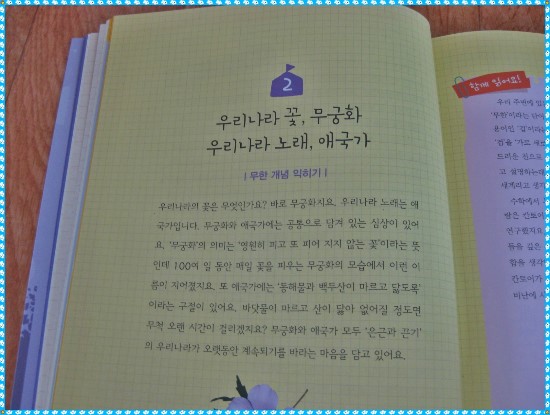 2
우리나라 꽃, 무궁화
우리나라 노래, 애국가
| 무한 개념 익히기 |
우리나라의 꽃은 무엇인가요? 바로 무궁화지요. 우리나라 노래는 애
국가입니다. 무궁화와 애국가에는 공통으로 담겨 있는 심상이 있어
요. '무궁화'의 의미는 '영원히 피고 또 피어 지지 않는 꽃'이라는 뜻
인데 100여 일 동안 매일 꽃을 피우는 무궁화의 모습에서 이런 이
름이 지어졌지요. 또 애국가에는 '동해물과 백두산이 마르고 닳도록'
이라는 구절이 있어요. 바닷물이 마르고 산이 닳아 없어질 정도면
무척 오랜 시간이 걸리겠지요? 무궁화와 애국가 모두 '은근과 끈기'
의 우리나라가 오랫동안 계속되기를 바라는 마음을 담고 있어요.
함께 읽어요!
우리 주변에 있
'무한'이라는 단어
용어인 '겁'이라
'겁'을 '가로 세로
드리운 선도
고 설명하는데
세계라고 생각
수학에서
발은 칸토어
연구했지요
들을 깊은
합을 생각
칸토어가
미난에 시